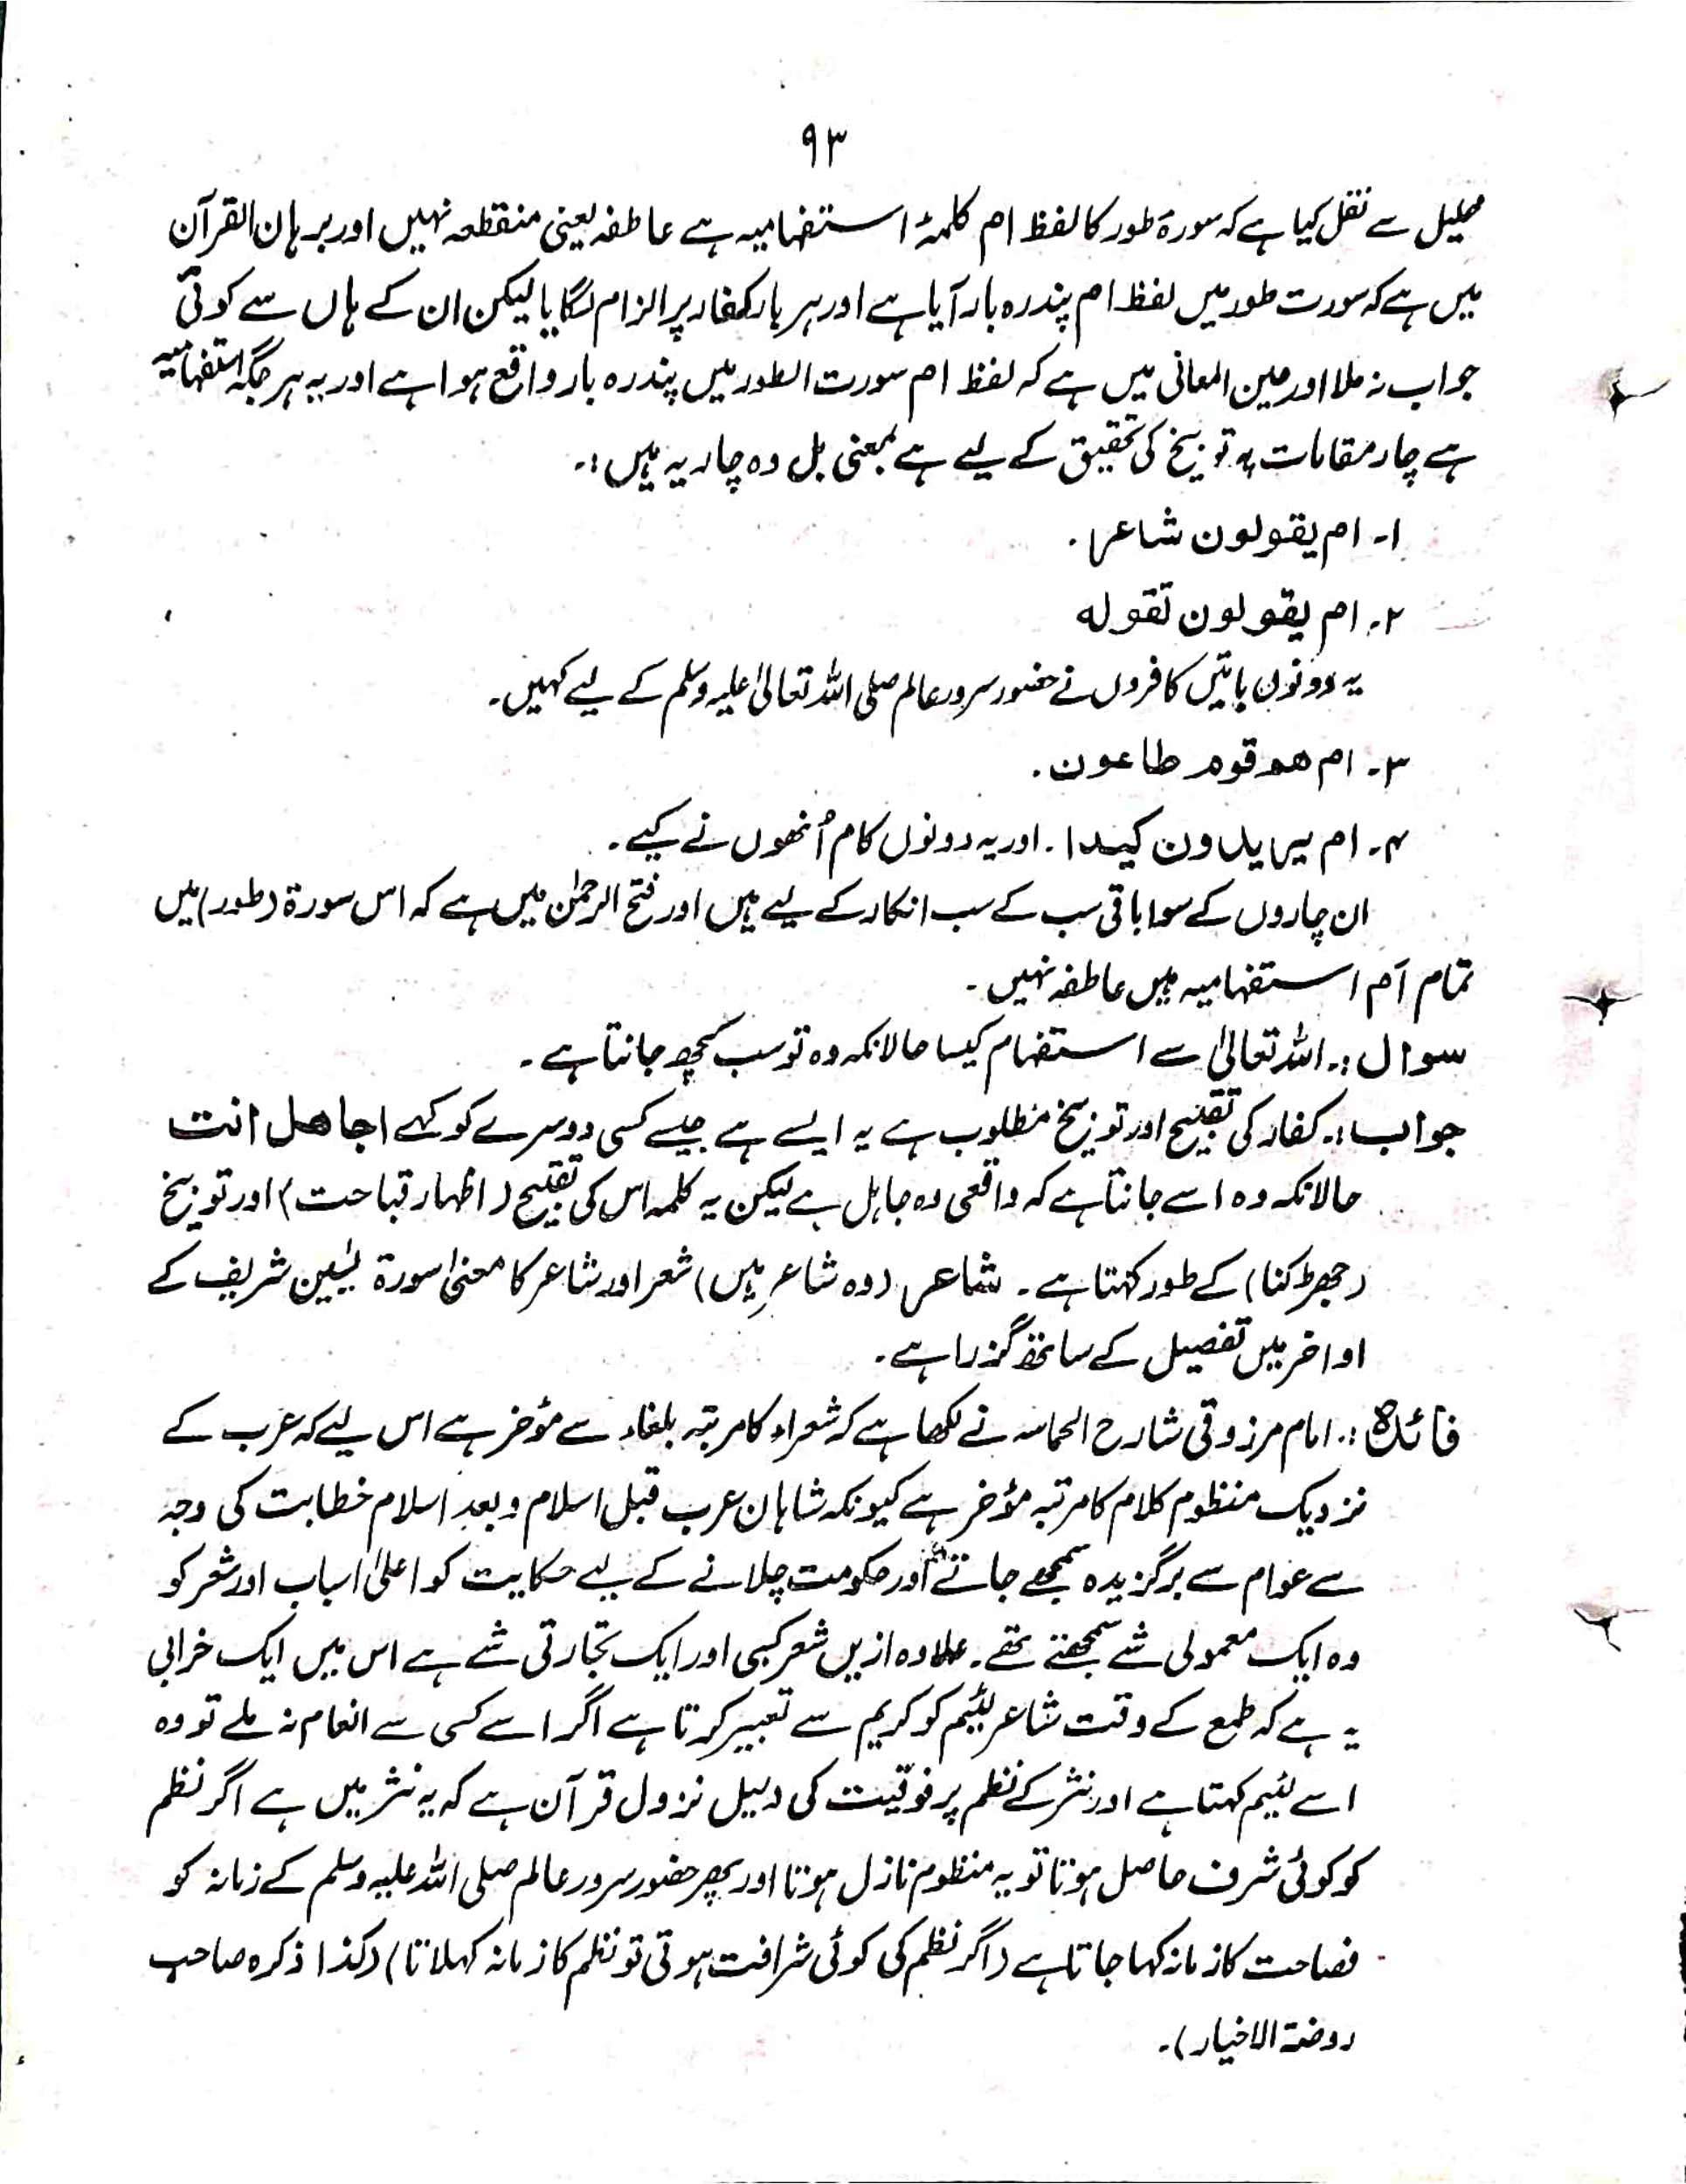 ۹۳
خلیل سے نقل کیا ہے کہ سورۃ طور کا لفظ ام کلمۂ استفہامیہ ہے عاطفہ یعنی منقطعہ نہیں اور برہان القرآن
میں ہے کہ سورت طور میں لفظ ام پندرہ بار آیا ہے اور ہر بار کفار پر الزام لگایا لیکن ان کے ہاں سے کوئی
جواب نہ ملا اور عین المعانی میں ہے کہ لفظ ام سورت الطور میں پندرہ بار واقع ہوا ہے اور یہ ہر جگہ استفہامیہ
ہے چار مقامات پہ توبیخ کی تحقیق کے لیے ہے بمعنی بل وہ چار یہ ہیں :۔
۱۔ ام یقولون شاعر۔
۲۔ ام یقولون تقولہ
یہ دونوں باتیں کافروں نے حضور سرور عالم صلی اللہ تعالیٰ علیہ وسلم کے لیے کہیں۔
۳۔ ام ھم قوم طاعون۔
۴۔ ام یریدون کیدا۔ اور یہ دونوں کام اُنھوں نے کیے۔
ان چاروں کے سوا باقی سب کے سب انکار کے لیے ہیں اور فتح الرحمٰن میں ہے کہ اس سورۃ (طور) میں
تمام اَم استفہامیہ ہیں عاطفہ نہیں۔
سوال :۔ اللہ تعالیٰ سے استفہام کیسا حالانکہ وہ تو سب کچھ جانتا ہے۔
جواب :۔ کفار کی تقبیح اور توبیخ مطلوب ہے یہ ایسے ہے جیسے کسی دوسرے کو کہے اجاھل انت
حالانکہ وہ اسے جانتا ہے کہ واقعی وہ جاہل ہے لیکن یہ کلمہ اس کی تقبیح (اظہار قباحت) اور توبیخ
(جھڑکنا) کے طور کہتا ہے۔ شاعر (وہ شاعر ہیں) شعر اور شاعر کا معنیٰ سورۃ یٰسین شریف کے
اواخر میں تفصیل کے ساتھ گزرا ہے۔
فائدہ :۔ امام مرزوقی شارح الحماسہ نے لکھا ہے کہ شعراء کا مرتبہ بلغاء سے مؤخر ہے اس لیے کہ عرب کے
نزدیک منظوم کلام کا مرتبہ مؤخر ہے کیونکہ شاہان عرب قبل اسلام و بعد اسلام خطابت کی وجہ
سے عوام سے برگزیدہ سمجھے جاتے تھے اور حکومت چلانے کے لیے حکایت کو اعلیٰ اسباب اور شعر کو
وہ ایک معمولی شے سمجھتے تھے۔ علاوہ ازیں شعر کسبی اور ایک تجارتی شے ہے اس میں ایک خرابی
یہ ہے کہ طمع کے وقت شاعر لئیم کو کریم سے تعبیر کرتا ہے اگر اسے کسی سے انعام نہ ملے تو وہ
اسے لئیم کہتا ہے اور نثر کے نظم پر فوقیت کی دلیل نزول قرآن ہے کہ یہ نثر میں ہے اگر نظم
کو کوئی شرف حاصل ہوتا تو یہ منظوم نازل ہوتا اور پھر حضور سرور عالم صلی اللہ علیہ وسلم کے زمانہ کو
فصاحت کا زمانہ کہا جاتا ہے (اگر نظم کی کوئی شرافت ہوتی تو نظم کا زمانہ کہلاتا) (کذا ذکرہ صاحب
روضۃ الاخیار)۔